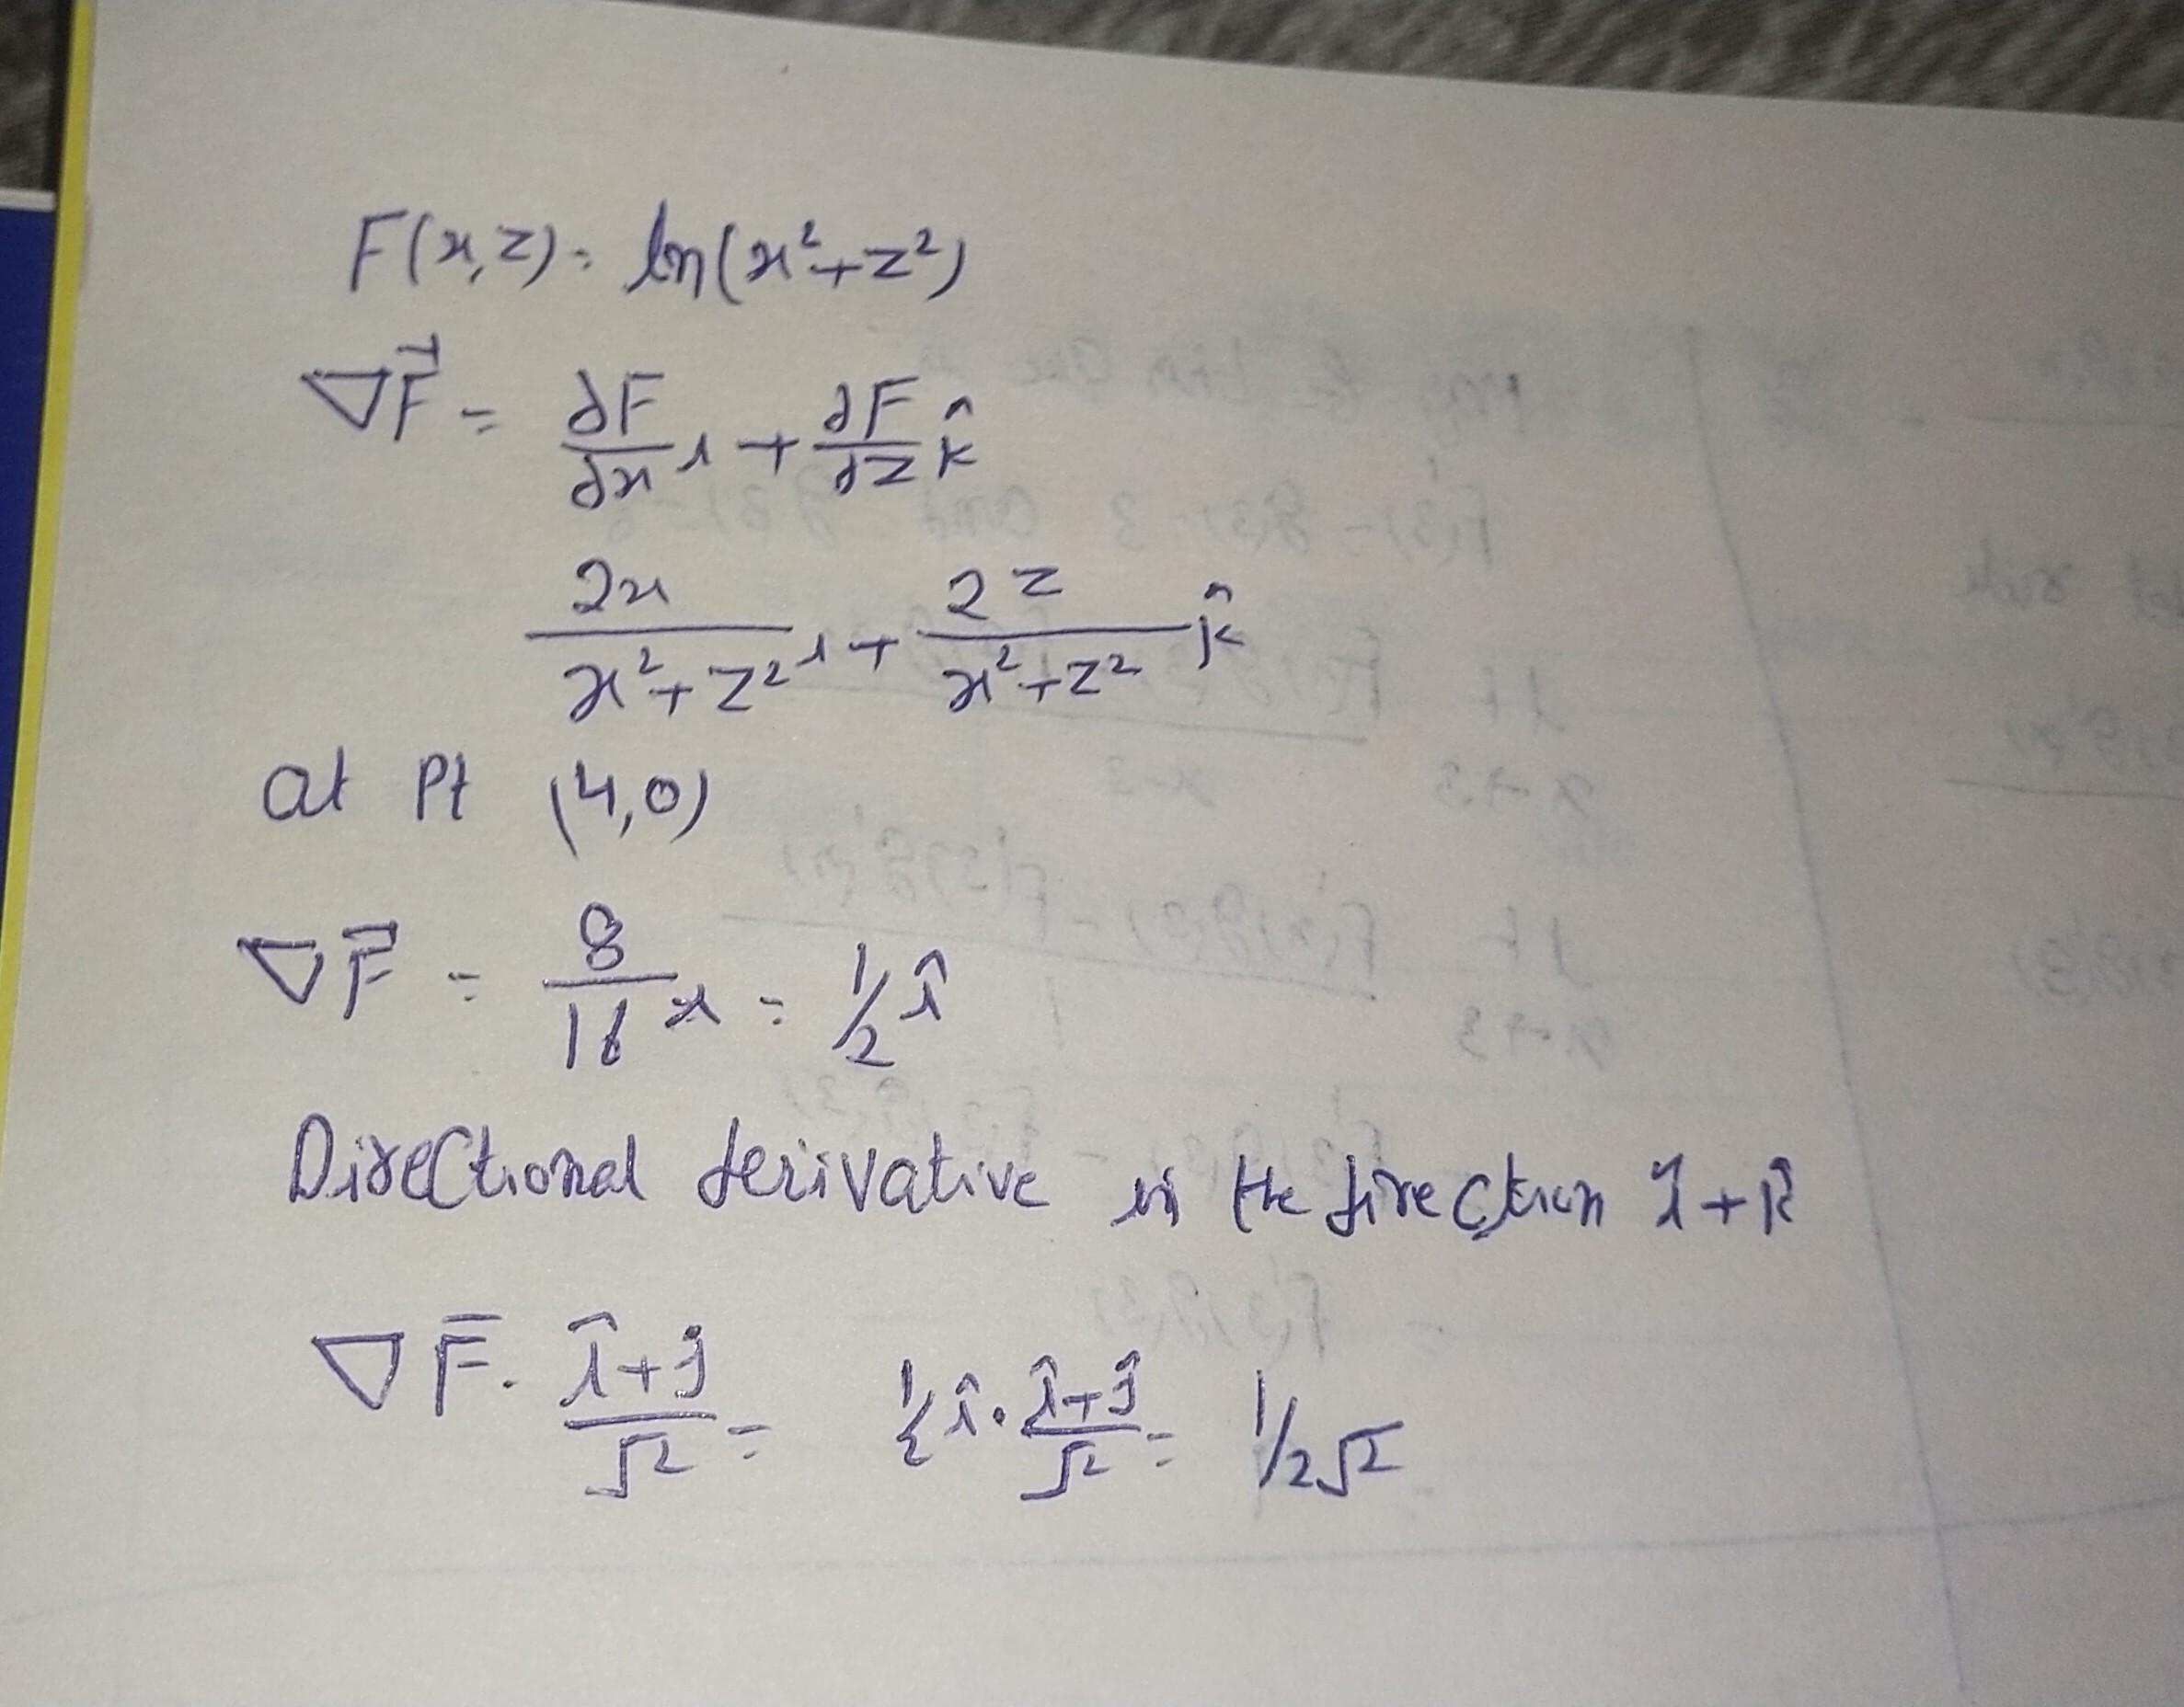 F(x,z) = ln(x²+z²)
∇F⃗ = ∂F/∂x i + ∂F/∂z k̂
2x/(x²+z²) i + 2z/(x²+z²) k̂
at Pt (4,0)
∇F⃗ = 8/16 i = 1/2 î
Directional derivative in the direction î+k̂
∇F̅ · (î+j)/√2 = 1/2 î · (î+ĵ)/√2 = 1/2√2